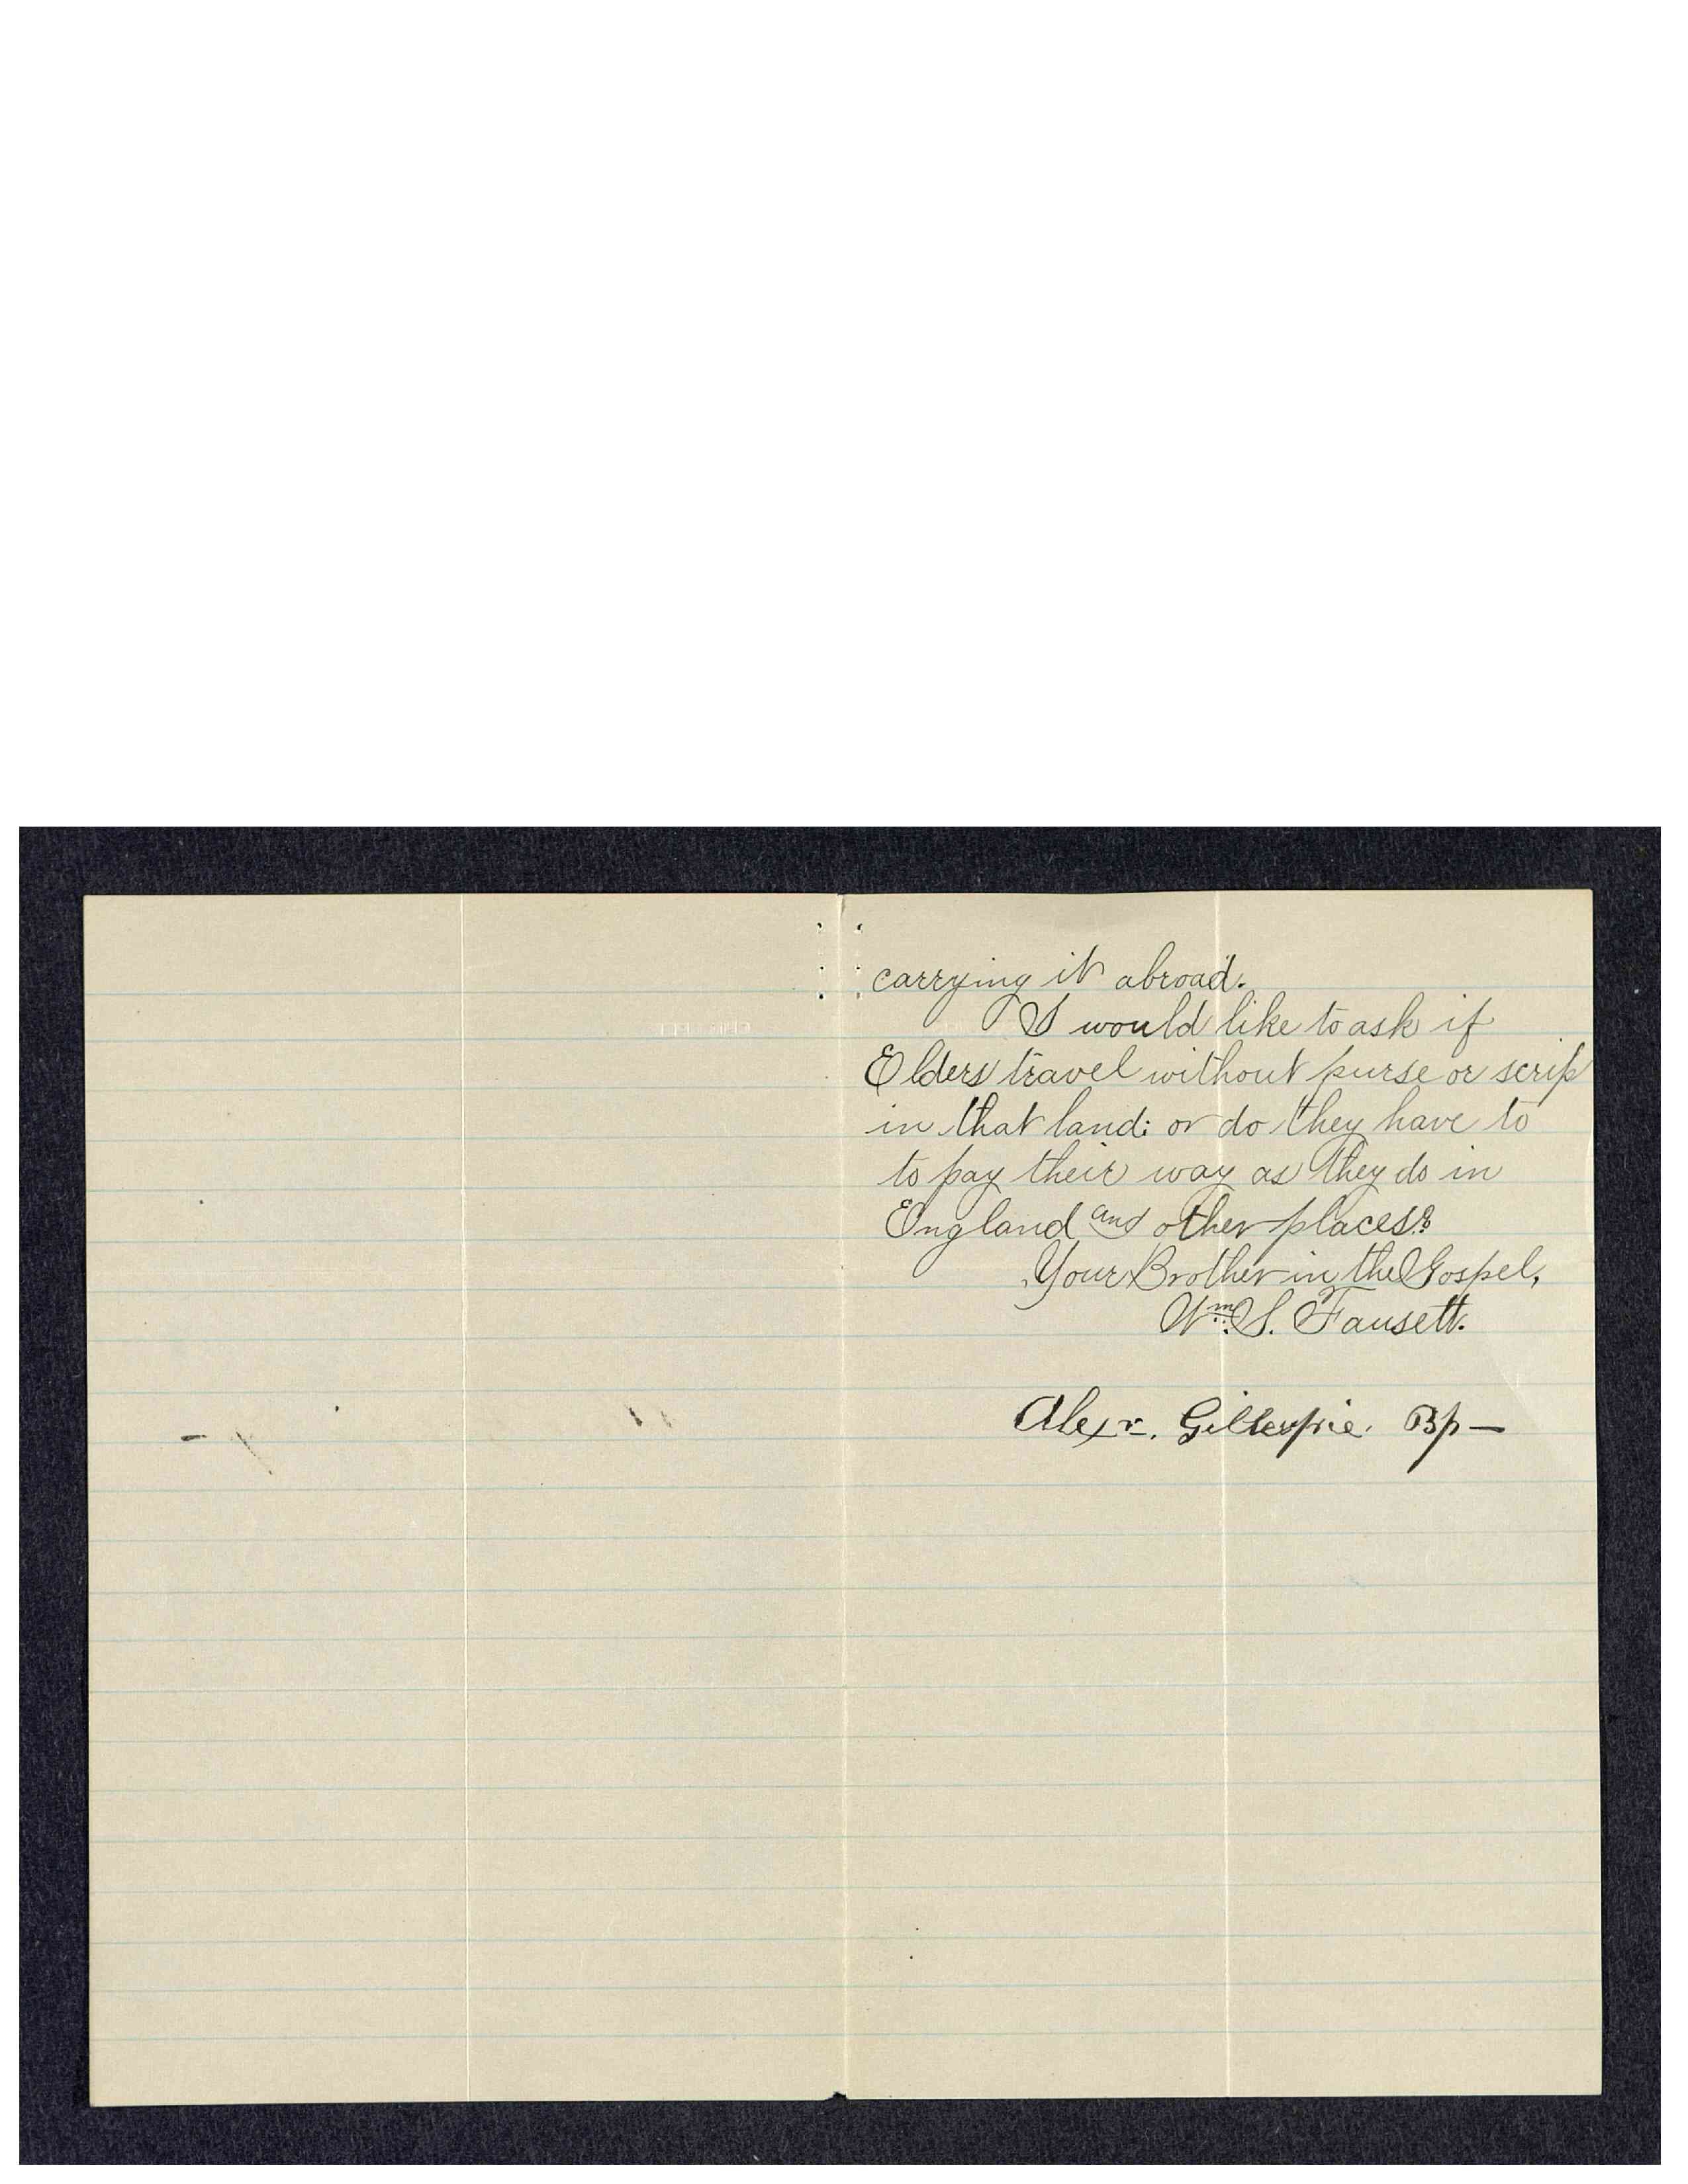 carrying it abroad.
I would like to ask if
Elders travel without purse or scrip
in that land; or do they have to
to pay their way as they do in
England and other places?
Your Brother in the Gospel,
Wm. S. Fausett.
Alexr. Gillespie. Bp—